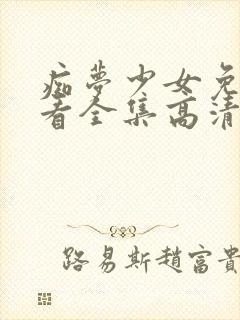 痴夢少女免
看全集高清
路易斯趙富貴